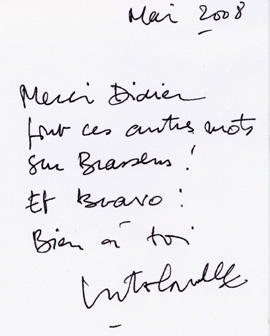 Mai 2008
Merci Didier
pour ces autres mots
sur Brassens !
Et Bravo !
Bien à toi